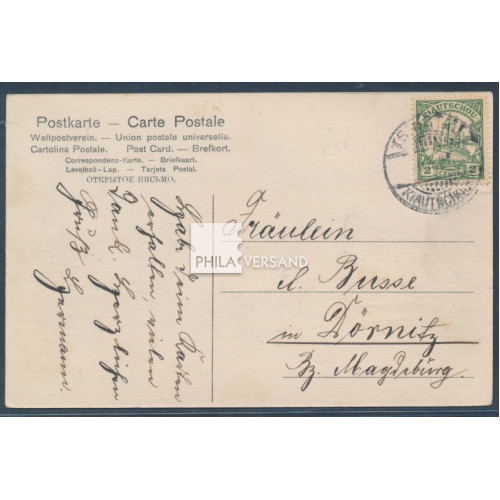 Postkarte — Carte Postale
Weltpostverein. — Union postale universelle.
Cartolina Postale. Post Card. — Brefkort.
Correspondenz-Karte. — Briefkaart.
Levelező-Lap. — Tarjeta Postal.
ОТКРЫТОЕ ПИСЬМО.
KIAUTSCHOU
2 CENTS 2
KIAUTSCHOU
PHILA VERSAND
Fräulein
Busse
in Dörnitz
Bz. Magdeburg.
Habe Deine Karten
erhalten, vielen
Dank. Herzlichen
Gruß
Hermann.